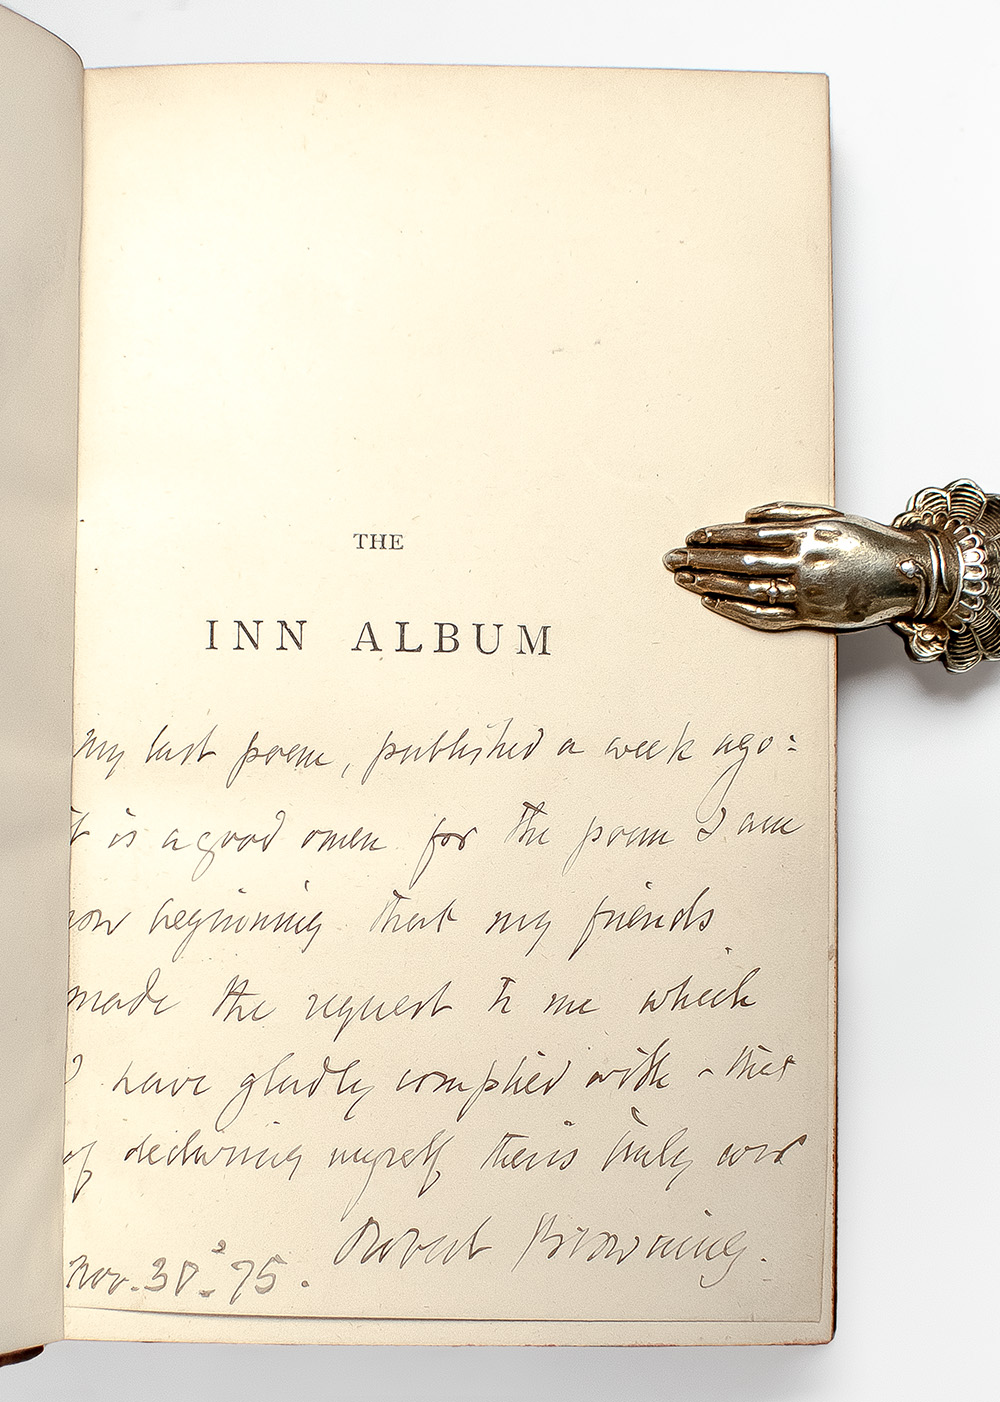 THE
INN ALBUM
My last poem, published a week ago:
it is a good omen for the poem I am
now beginning that my friends
made the request to me which
I have gladly complied with - that
of declaring myself theirs truly ever
Robert Browning.
Nov. 30. '75.